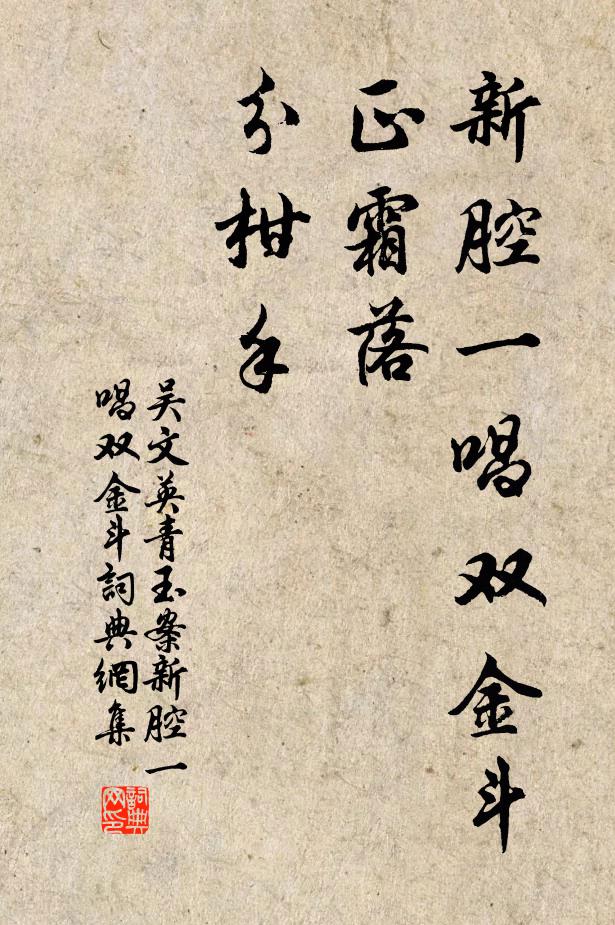 新腔一唱双金斗
正霜落
分柑手
吴文英青玉案新腔一
唱双金斗詞典網集
詞典
网印